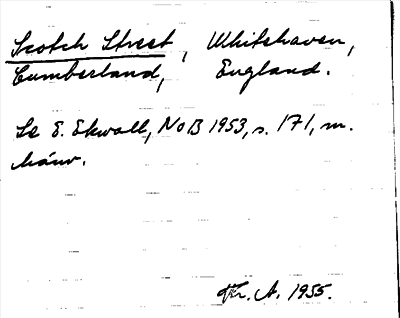 Scotch Street, Whitehaven,
Cumberland, England.
Se E. Ekwall, NoB 1953, s. 171, m.
hänv.
Hr. A. 1955.